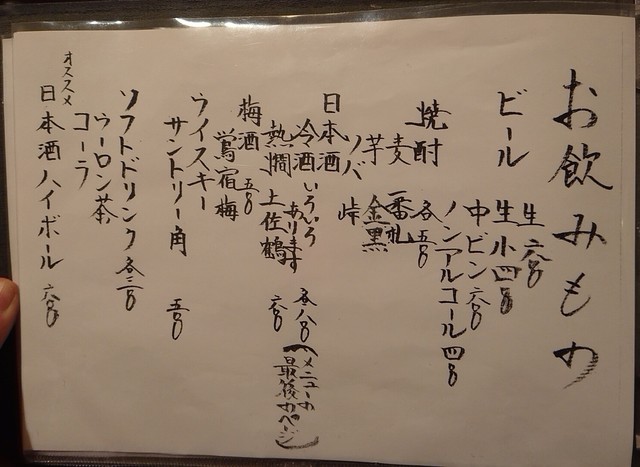 お飲みもの
ビール
生 六〇〇
生小 四〇〇
中ビン 六〇〇
ノンアルコール 四〇〇
焼酎 各五〇〇
麦 一番札
芋 金黒
ソバ 峠
日本酒
冷酒 いろいろあります 各八〇〇〜
(メニューの最後のページ)
熱燗 土佐鶴 六〇〇
梅酒 五〇〇
鶯宿梅
ウイスキー
サントリー角 五〇〇
ソフトドリンク 各三〇〇
ウーロン茶
コーラ
オススメ
日本酒ハイボール 六〇〇